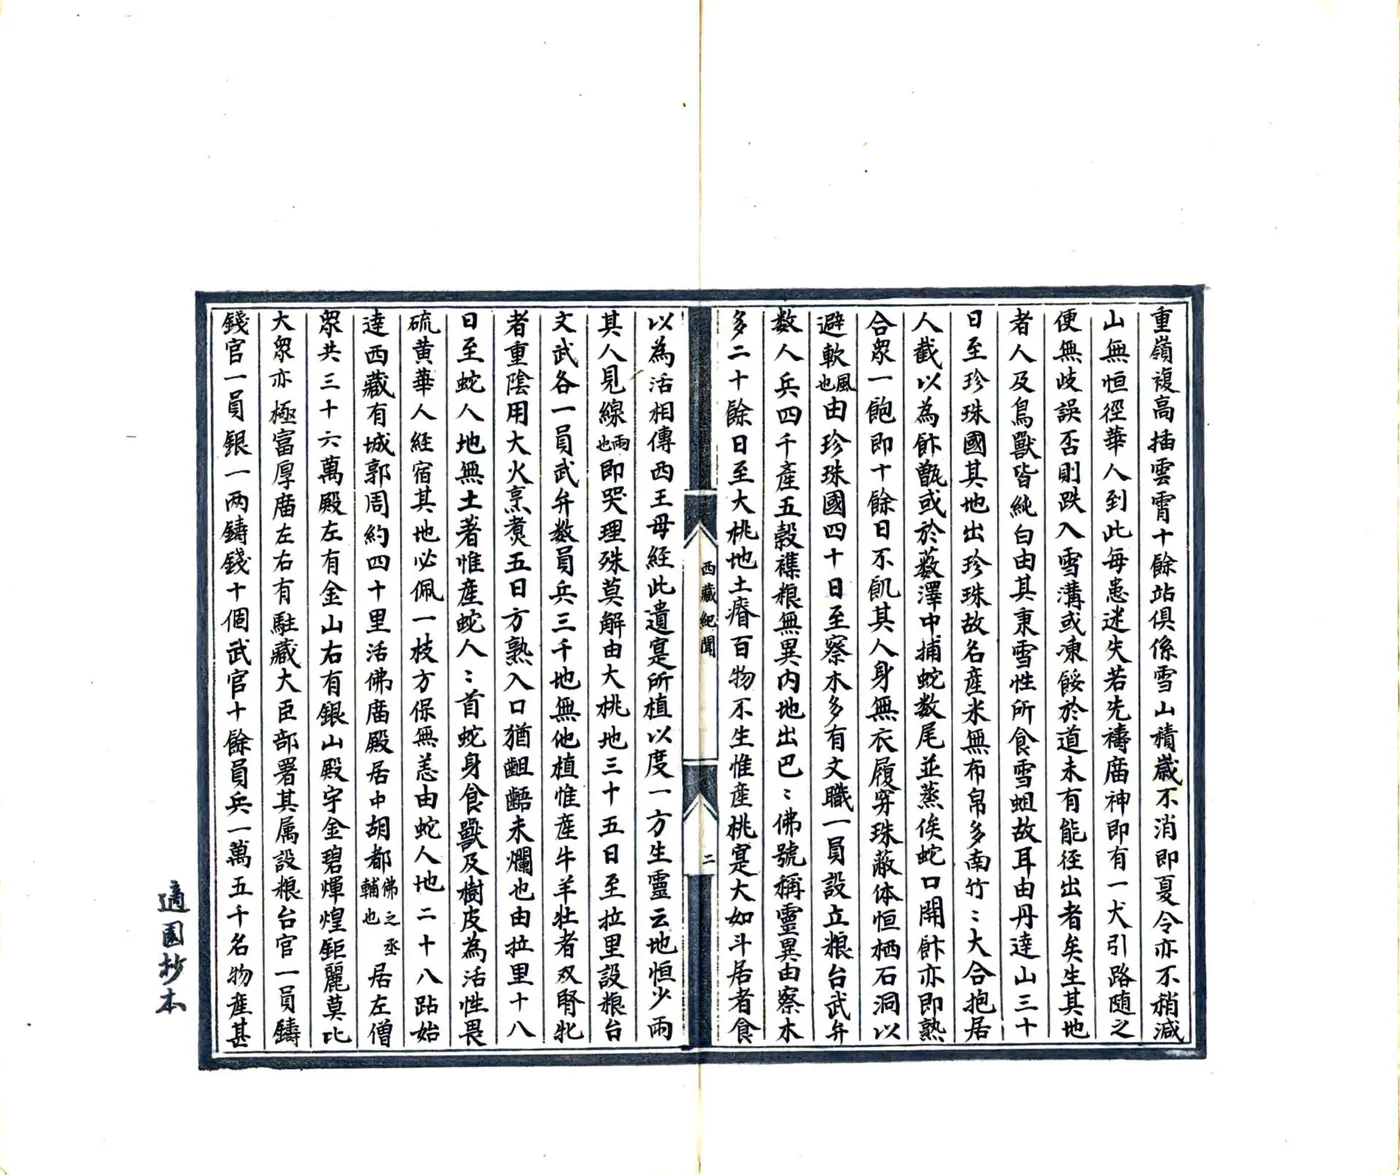 重嶺複高插雲霄十餘站俱係雪山積歲不消即夏令亦不稍減
山無恒徑華人到此每患迷失若先禱庙神即有一犬引路随之
便無歧誤否則跌入雪溝或凍餒於道未有能径出者矣生其地
者人及鳥獸皆純白由其秉雪性所食雪蛆故耳由丹達山三十
日至珍珠國其地出珍珠故名産米無布帛多南竹〻大合抱居
人截以為飰甑或於薮澤中捕蛇数尾並蒸俟蛇口開飰亦即熟
合衆一飽即十餘日不飢其人身無衣履穿珠蔽体恒栖石洞以
避軟風也由珍珠國四十日至察木多有文職一員設立粮台武弁
数人兵四千産五穀襍粮無異内地出巴〻佛號稱靈異由察木
多二十餘日至大桃地土瘠百物不生惟産桃寔大如斗居者食
西藏紀聞
二
以為活相傳西王母經此遺寔所植以度一方生靈云地恒少雨
其人見線雨也即哭理殊莫解由大桃地三十五日至拉里設粮台
文武各一員武弁数員兵三千地無他植惟産牛羊壮者双腎牝
者重陰用大火烹煑五日方熟入口猶齟齬未爛也由拉里十八
日至蛇人地無土著惟産蛇人〻首蛇身食獸及樹皮為活性畏
硫黄華人經宿其地必佩一枝方保無恙由蛇人地二十八跕始
達西藏有城郭周約四十里活佛廣殿居中胡都佛之丞輔也居左僧
衆共三十六萬殿左有金山右有銀山殿宇金碧煇煌鉅麗莫比
大衆亦極富厚庿左右有駐藏大臣部署其属設粮台官一員鑄
錢官一員銀一两鑄錢十個武官十餘員兵一萬五千名物産甚
適園抄本